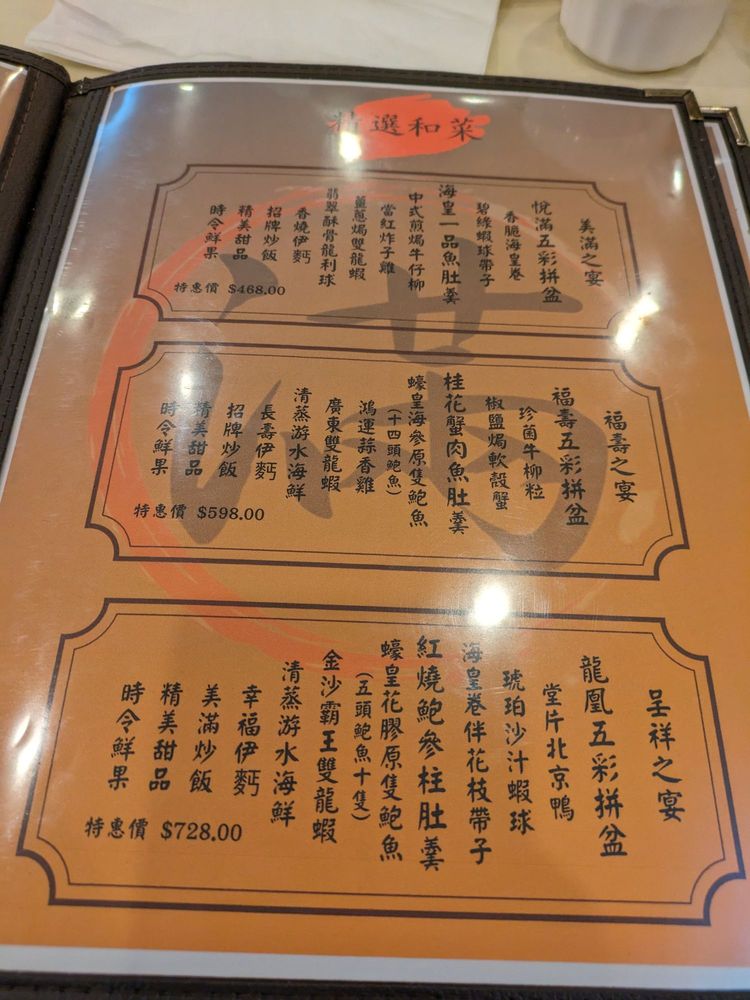 精選和菜
美滿之宴
悅滿五彩拼盆
香脆海皇卷
碧綠蝦球帶子
海皇一品魚肚羹
中式煎焗牛仔柳
當紅炸子雞
薑蔥焗雙龍蝦
翡翠酥骨龍利球
香燒伊麪
招牌炒飯
精美甜品
時令鮮果
特惠價 $468.00
福壽之宴
福壽五彩拼盆
珍菌牛柳粒
椒鹽焗軟殼蟹
桂花蟹肉魚肚羹
蠔皇海參原隻鮑魚
(十四頭鮑魚)
鴻運蒜香雞
廣東雙龍蝦
清蒸游水海鮮
長壽伊麪
招牌炒飯
精美甜品
時令鮮果
特惠價 $598.00
呈祥之宴
龍凰五彩拼盆
堂片北京鴨
琥珀沙汁蝦球
海皇卷伴花枝帶子
紅燒鮑參柱肚羹
蠔皇花膠原隻鮑魚
(五頭鮑魚十隻)
金沙霸王雙龍蝦
清蒸游水海鮮
幸福伊麪
美滿炒飯
精美甜品
時令鮮果
特惠價 $728.00
滿